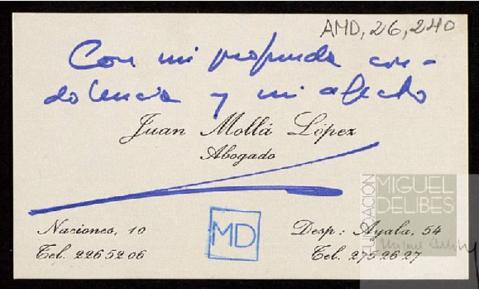 AMD, 26, 240
Con mi profunda con-
dolencia y mi afecto
Juan Mollá López
Abogado
Naciones, 10
Tel. 226 52 06
MD
Desp: Ayala, 54
Tel. 275 26 27
FUNDACIÓN
MIGUEL
DELIBES